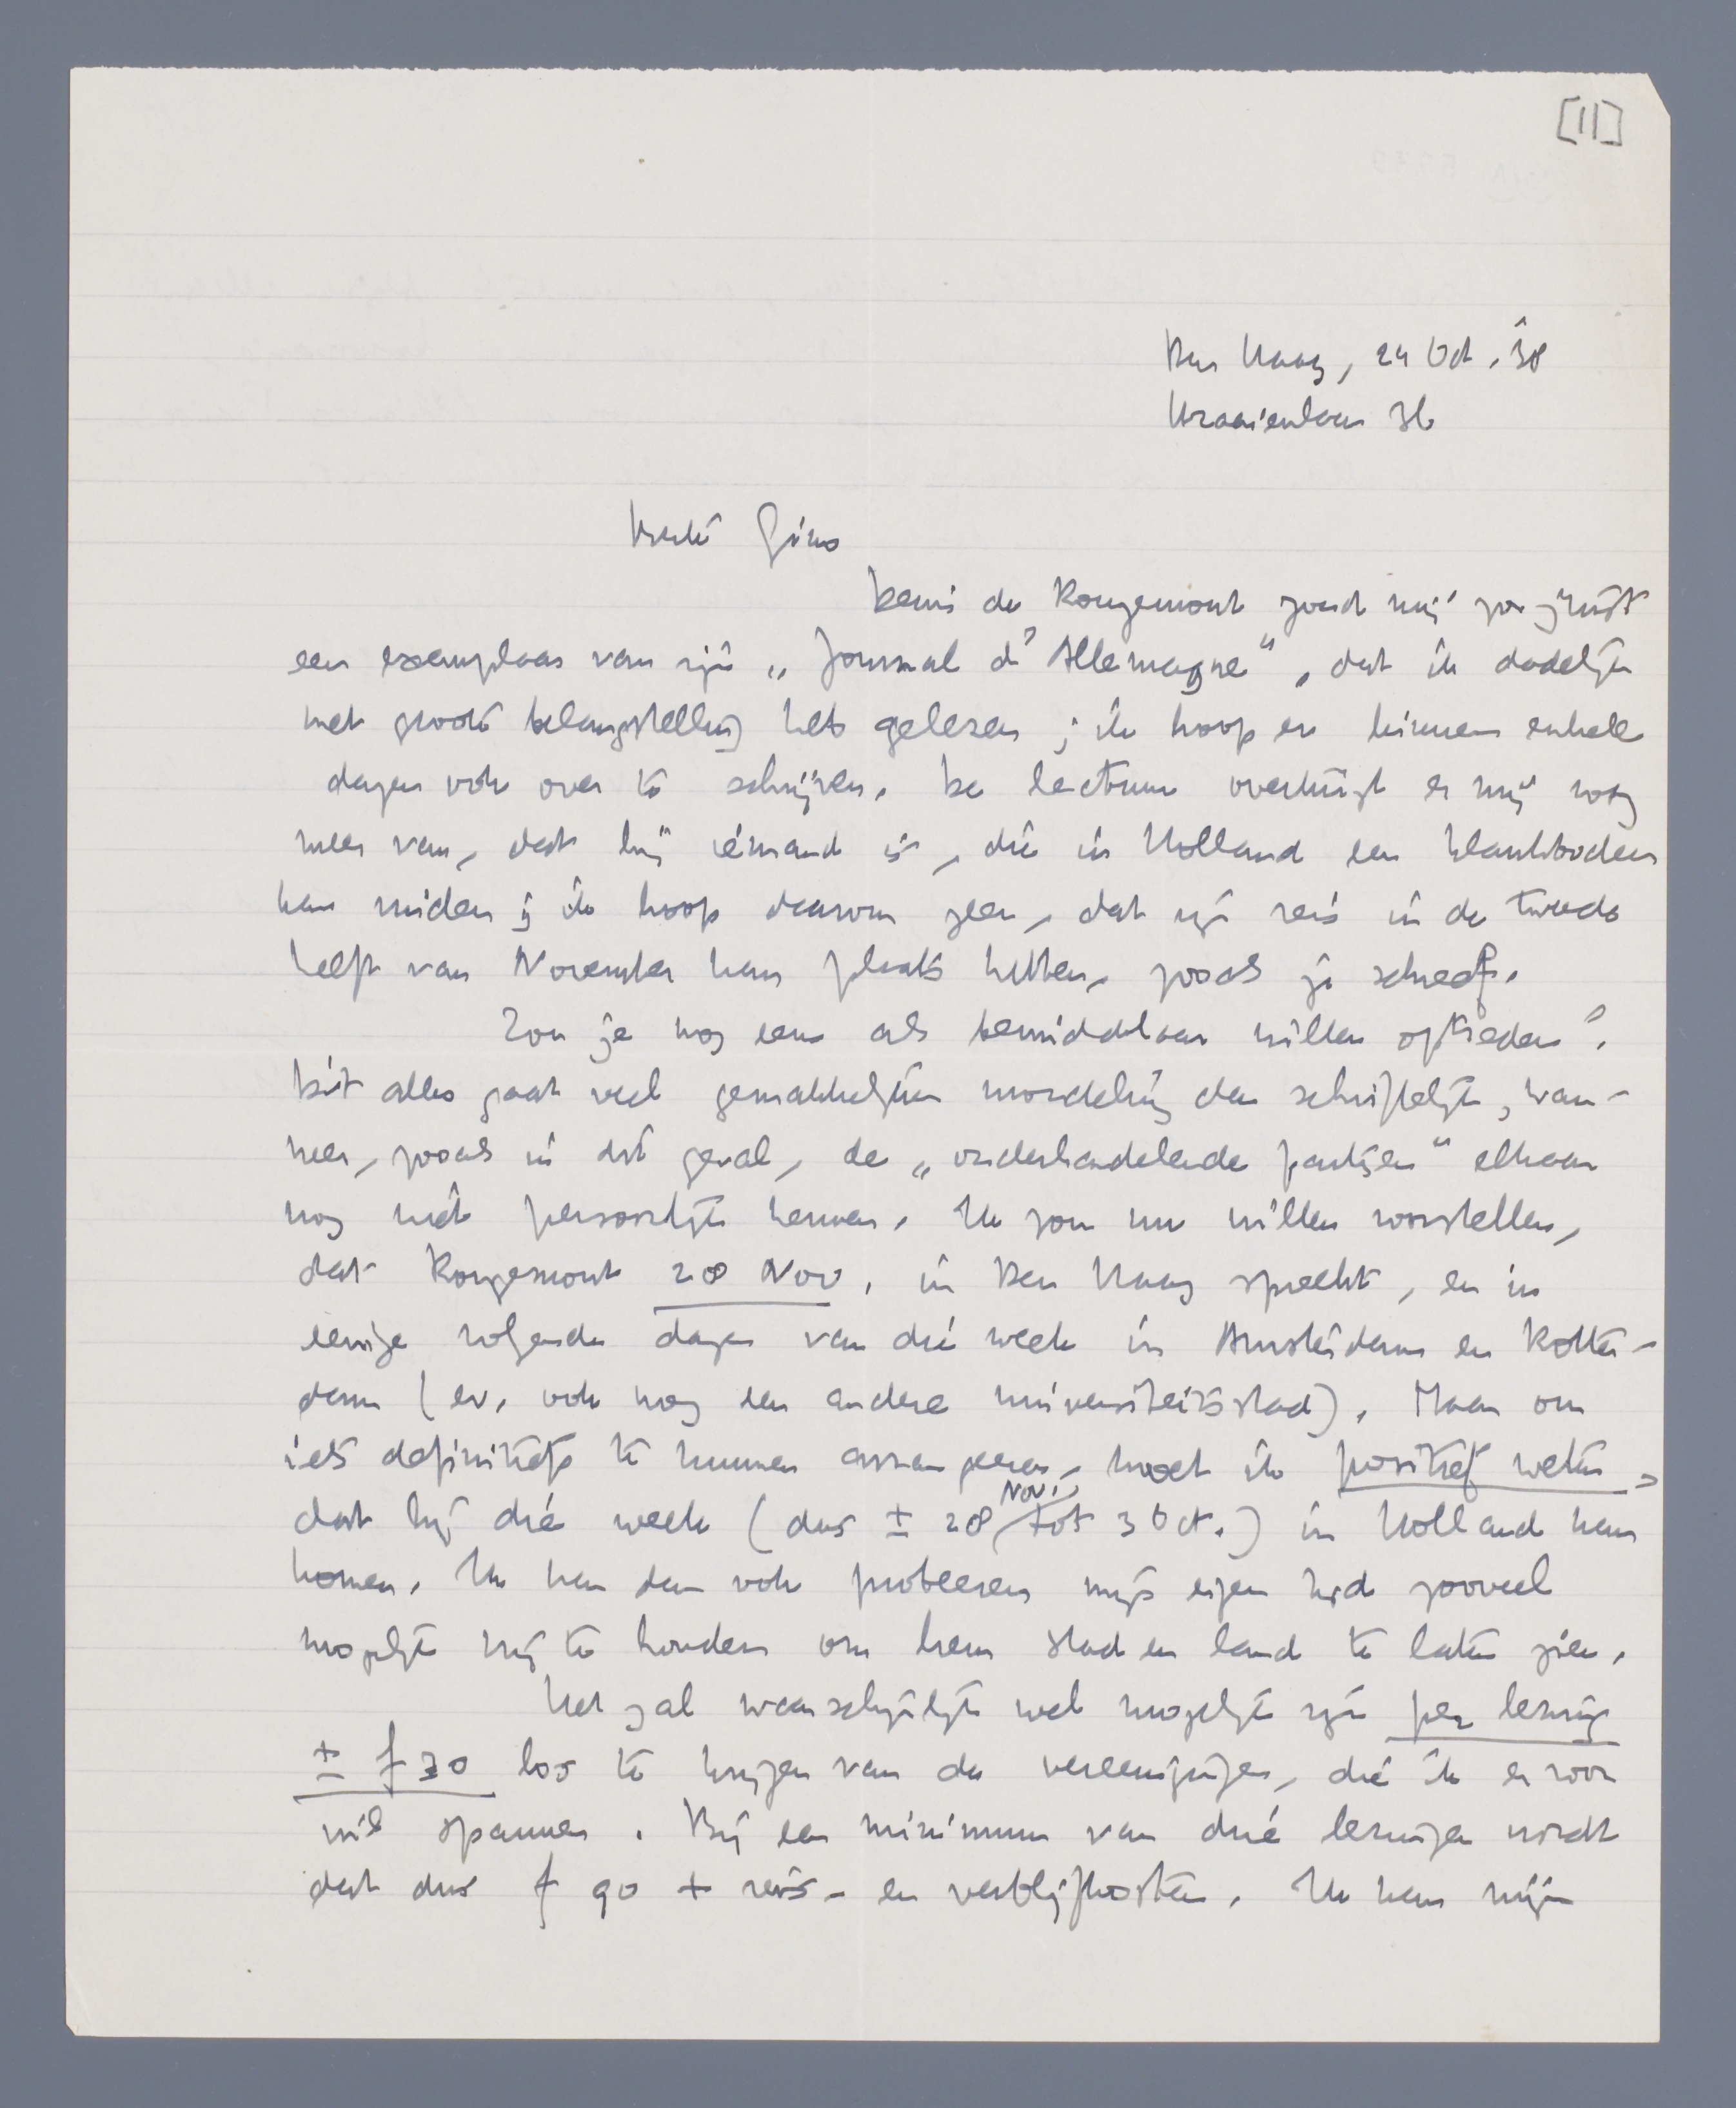 [11]
Den Haag, 24 Oct. '38
Kraaienlaan 36
Beste Gino
Denis de Rougemont zond mij zoo juist
een exemplaar van zijn „Journal d'Allemagne", dat ik dadelijk
met groote belangstelling heb gelezen; ik hoop er binnen enkele
dagen ook over te schrijven. De lectuur overtuigt er mij nog
meer van, dat hij iemand is, die in Holland een klankbodem
kan vinden; ik hoop daarom zeer, dat zijn reis in de tweede
helft van November kan plaats hebben, zooals je schreef.
Zou je nog eens als bemiddelaar willen optreden?
Dit alles gaat veel gemakkelijker mondeling dan schriftelijk, wan-
neer, zooals in dit geval, de „onderhandelende partijen" elkaar
nog niet persoonlijk kennen. Ik zou nu willen voorstellen,
dat Rougemont 28 Nov. in Den Haag spreekt, en in
eenige volgende dagen van die week in Amsterdam en Rotter-
dam (ev. ook nog een andere universiteitsstad). Maar om
iets definitiefs te kunnen arrangeeren, moet ik positief weten,
dat hij die week (dus ± 28 Nov. tot 3 Oct.) in Holland kan
komen. Ik kan dan ook probeeren mijn eigen tijd zooveel
mogelijk vrij te houden om hem stad en land te laten zien.
Het zal waarschijnlijk wel mogelijk zijn per lezing
± f 30 los te krijgen van de vereenigingen, die ik er voor
wil spannen. Bij een minimum van drie lezingen wordt
dat dus f 90 + reis- en verblijfkosten. Ik kan mijn